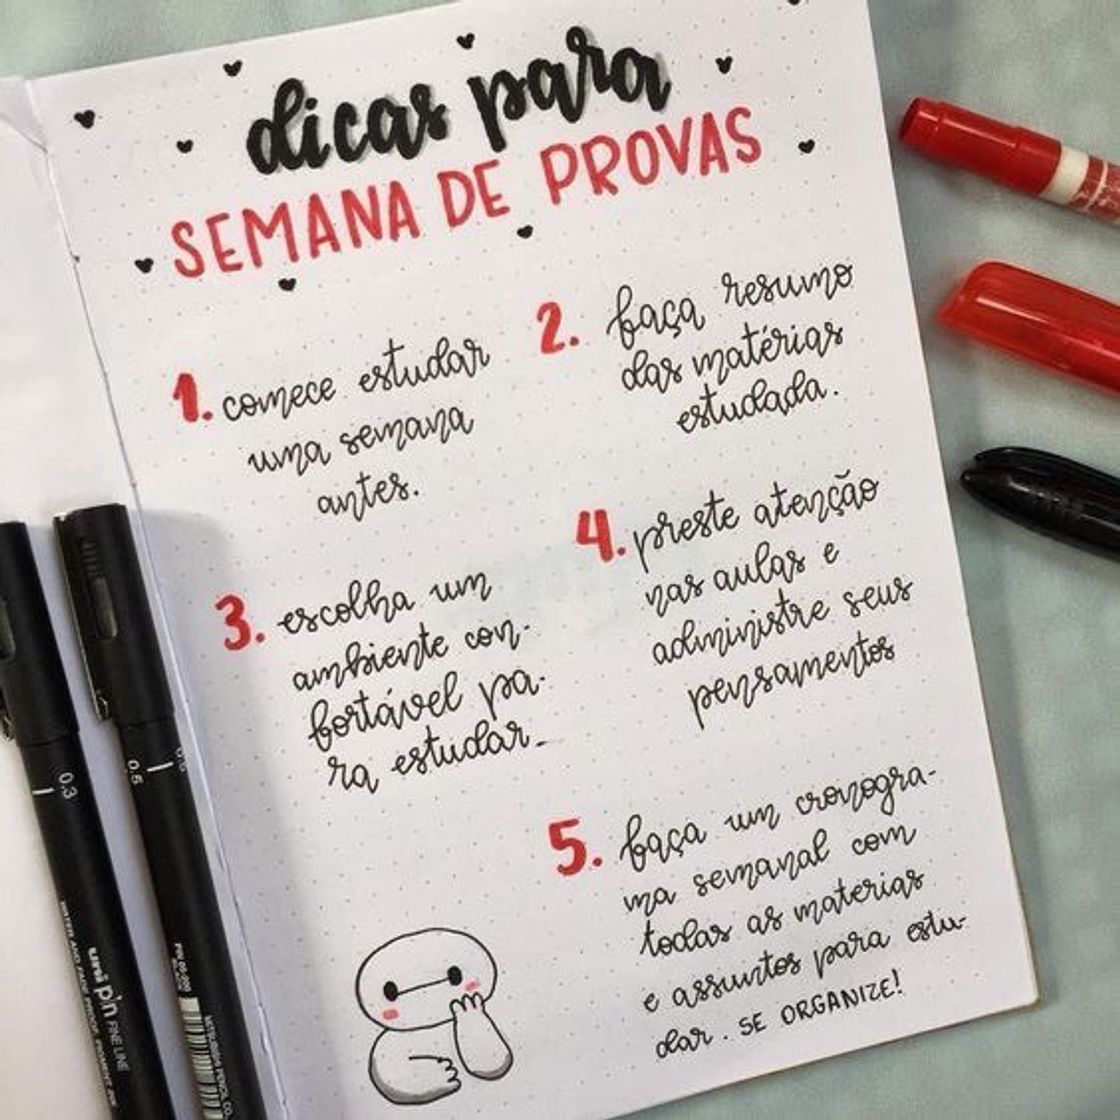 dicas para
SEMANA DE PROVAS
1. comece estudar
uma semana
antes.
2. faça resumo
das matérias
estudada.
3. escolha um
ambiente con-
fortável pa-
ra estudar.
4. preste atenção
nas aulas e
administre seus
pensamentos
5. faça um cronogra-
ma semanal com
todas as materias
e assuntos para estu-
dar. SE ORGANIZE!
0.3
0.5
uni pin
FINE LINE